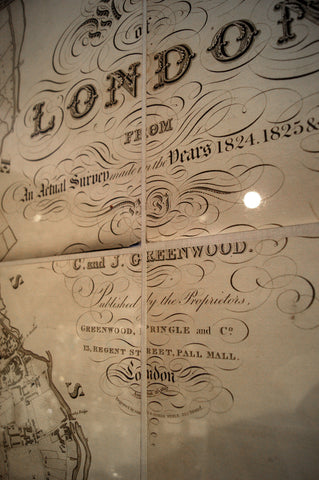 of
LONDON
FROM
An Actual Survey made in the Years 1824.1825 &
C. and J. GREENWOOD.
Published by the Proprietors,
GREENWOOD, PRINGLE and Co.
13, REGENT STREET, PALL MALL.
London
S
S